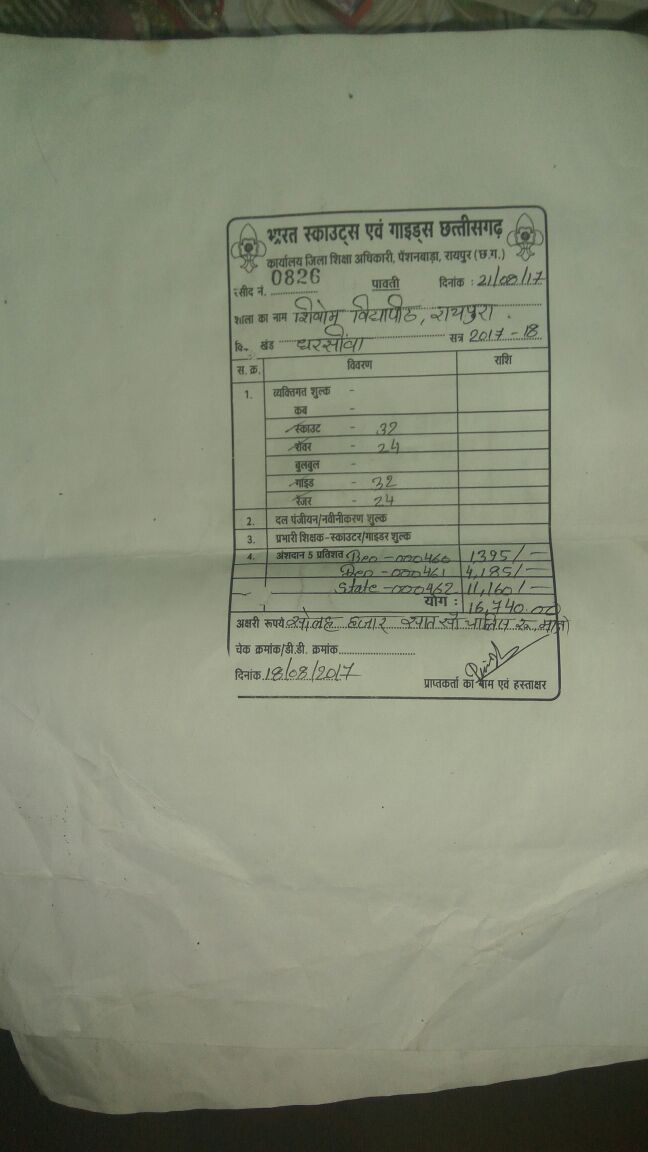 भारत स्काउट्स एवं गाइड्स छत्तीसगढ़
कार्यालय जिला शिक्षा अधिकारी, पेंशनबाड़ा, रायपुर (छ.ग.)
रसीद नं. 0826 पावती दिनांक : 21/08/17
शाला का नाम शिवोम विद्यापीठ, रायपुरा .
वि. खंड धरसींवा सत्र 2017 - 18
स.क्र. विवरण राशि
1. व्यक्तिगत शुल्क -
कब -
स्काउट - 32
रोवर - 24
बुलबुल -
गाइड - 32
रेंजर - 24
2. दल पंजीयन/नवीनीकरण शुल्क
3. प्रभारी शिक्षक-स्काउटर/गाइडर शुल्क
4. अंशदान 5 प्रतिशत Beo - 000460 1395/-
Deo - 000461 4,185/-
State - 000462 11,160/-
योग : 16,740.00
अक्षरी रूपये सोलह हजार सात सौ चालिस रू. मात्र
चेक क्रमांक/डी.डी. क्रमांक
दिनांक 18/08/2017
प्राप्तकर्ता का नाम एवं हस्ताक्षर